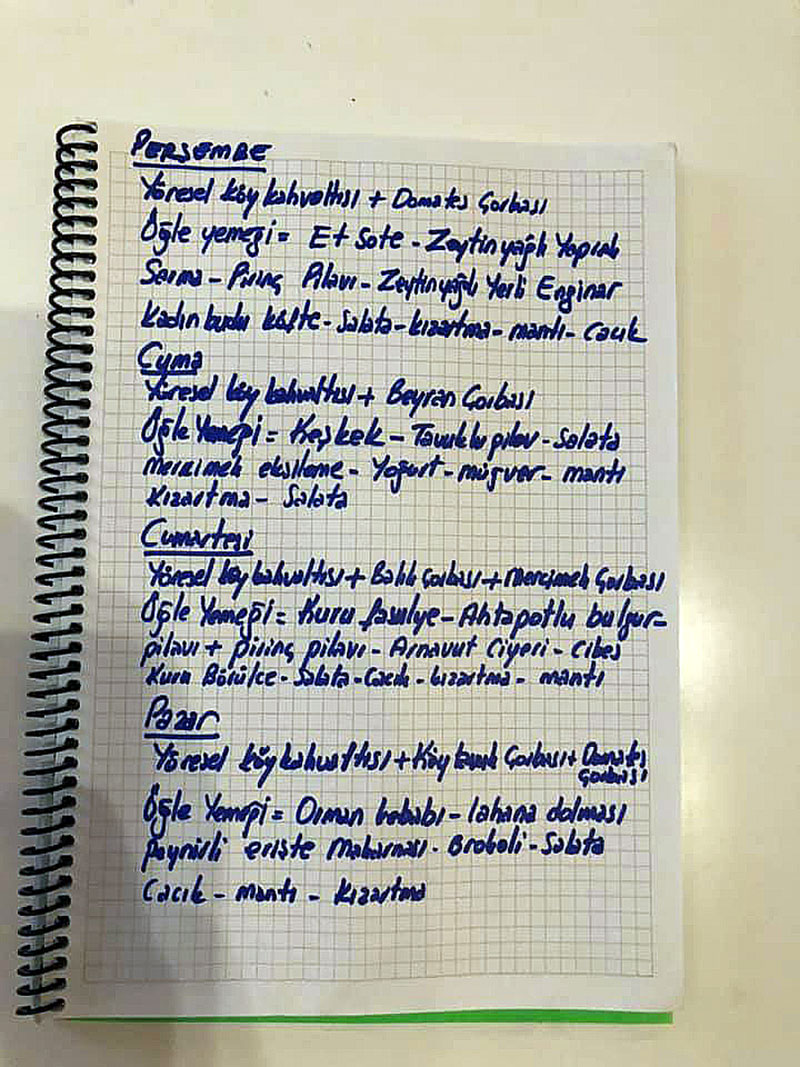 PERŞEMBE
Yöresel köy kahvaltısı + Domates Çorbası
Öğle yemeği = Et Sote - Zeytinyağlı Yaprak
Sarma - Pirinç Pilavı - Zeytinyağlı Yerli Enginar
Kadın budu köfte - Salata - kızartma - mantı - Cacık
Cuma
Yöresel köy kahvaltısı + Beyran Çorbası
Öğle Yemeği = Keşkek - Tavuklu pilav - Salata
mercimek ekşileme - Yoğurt - müşver - mantı
Kızartma - Salata
Cumartesi
Yöresel köy kahvaltısı + Balık Çorbası + Mercimek Çorbası
Öğle Yemeği = Kuru fasulye - Ahtapotlu bulgur -
pilavı + pirinç pilavı - Arnavut Ciyeri - Cibes
Kuru Börülce - Salata - Cacık - kızartma - mantı
Pazar
Yöresel köy kahvaltısı + Köy tavuk Çorbası + Domates
Çorbası
Öğle Yemeği = Orman kebabı - lahana dolması
peynirli erişte Makarnası - Brokoli - Salata
Cacık - mantı - Kızartma